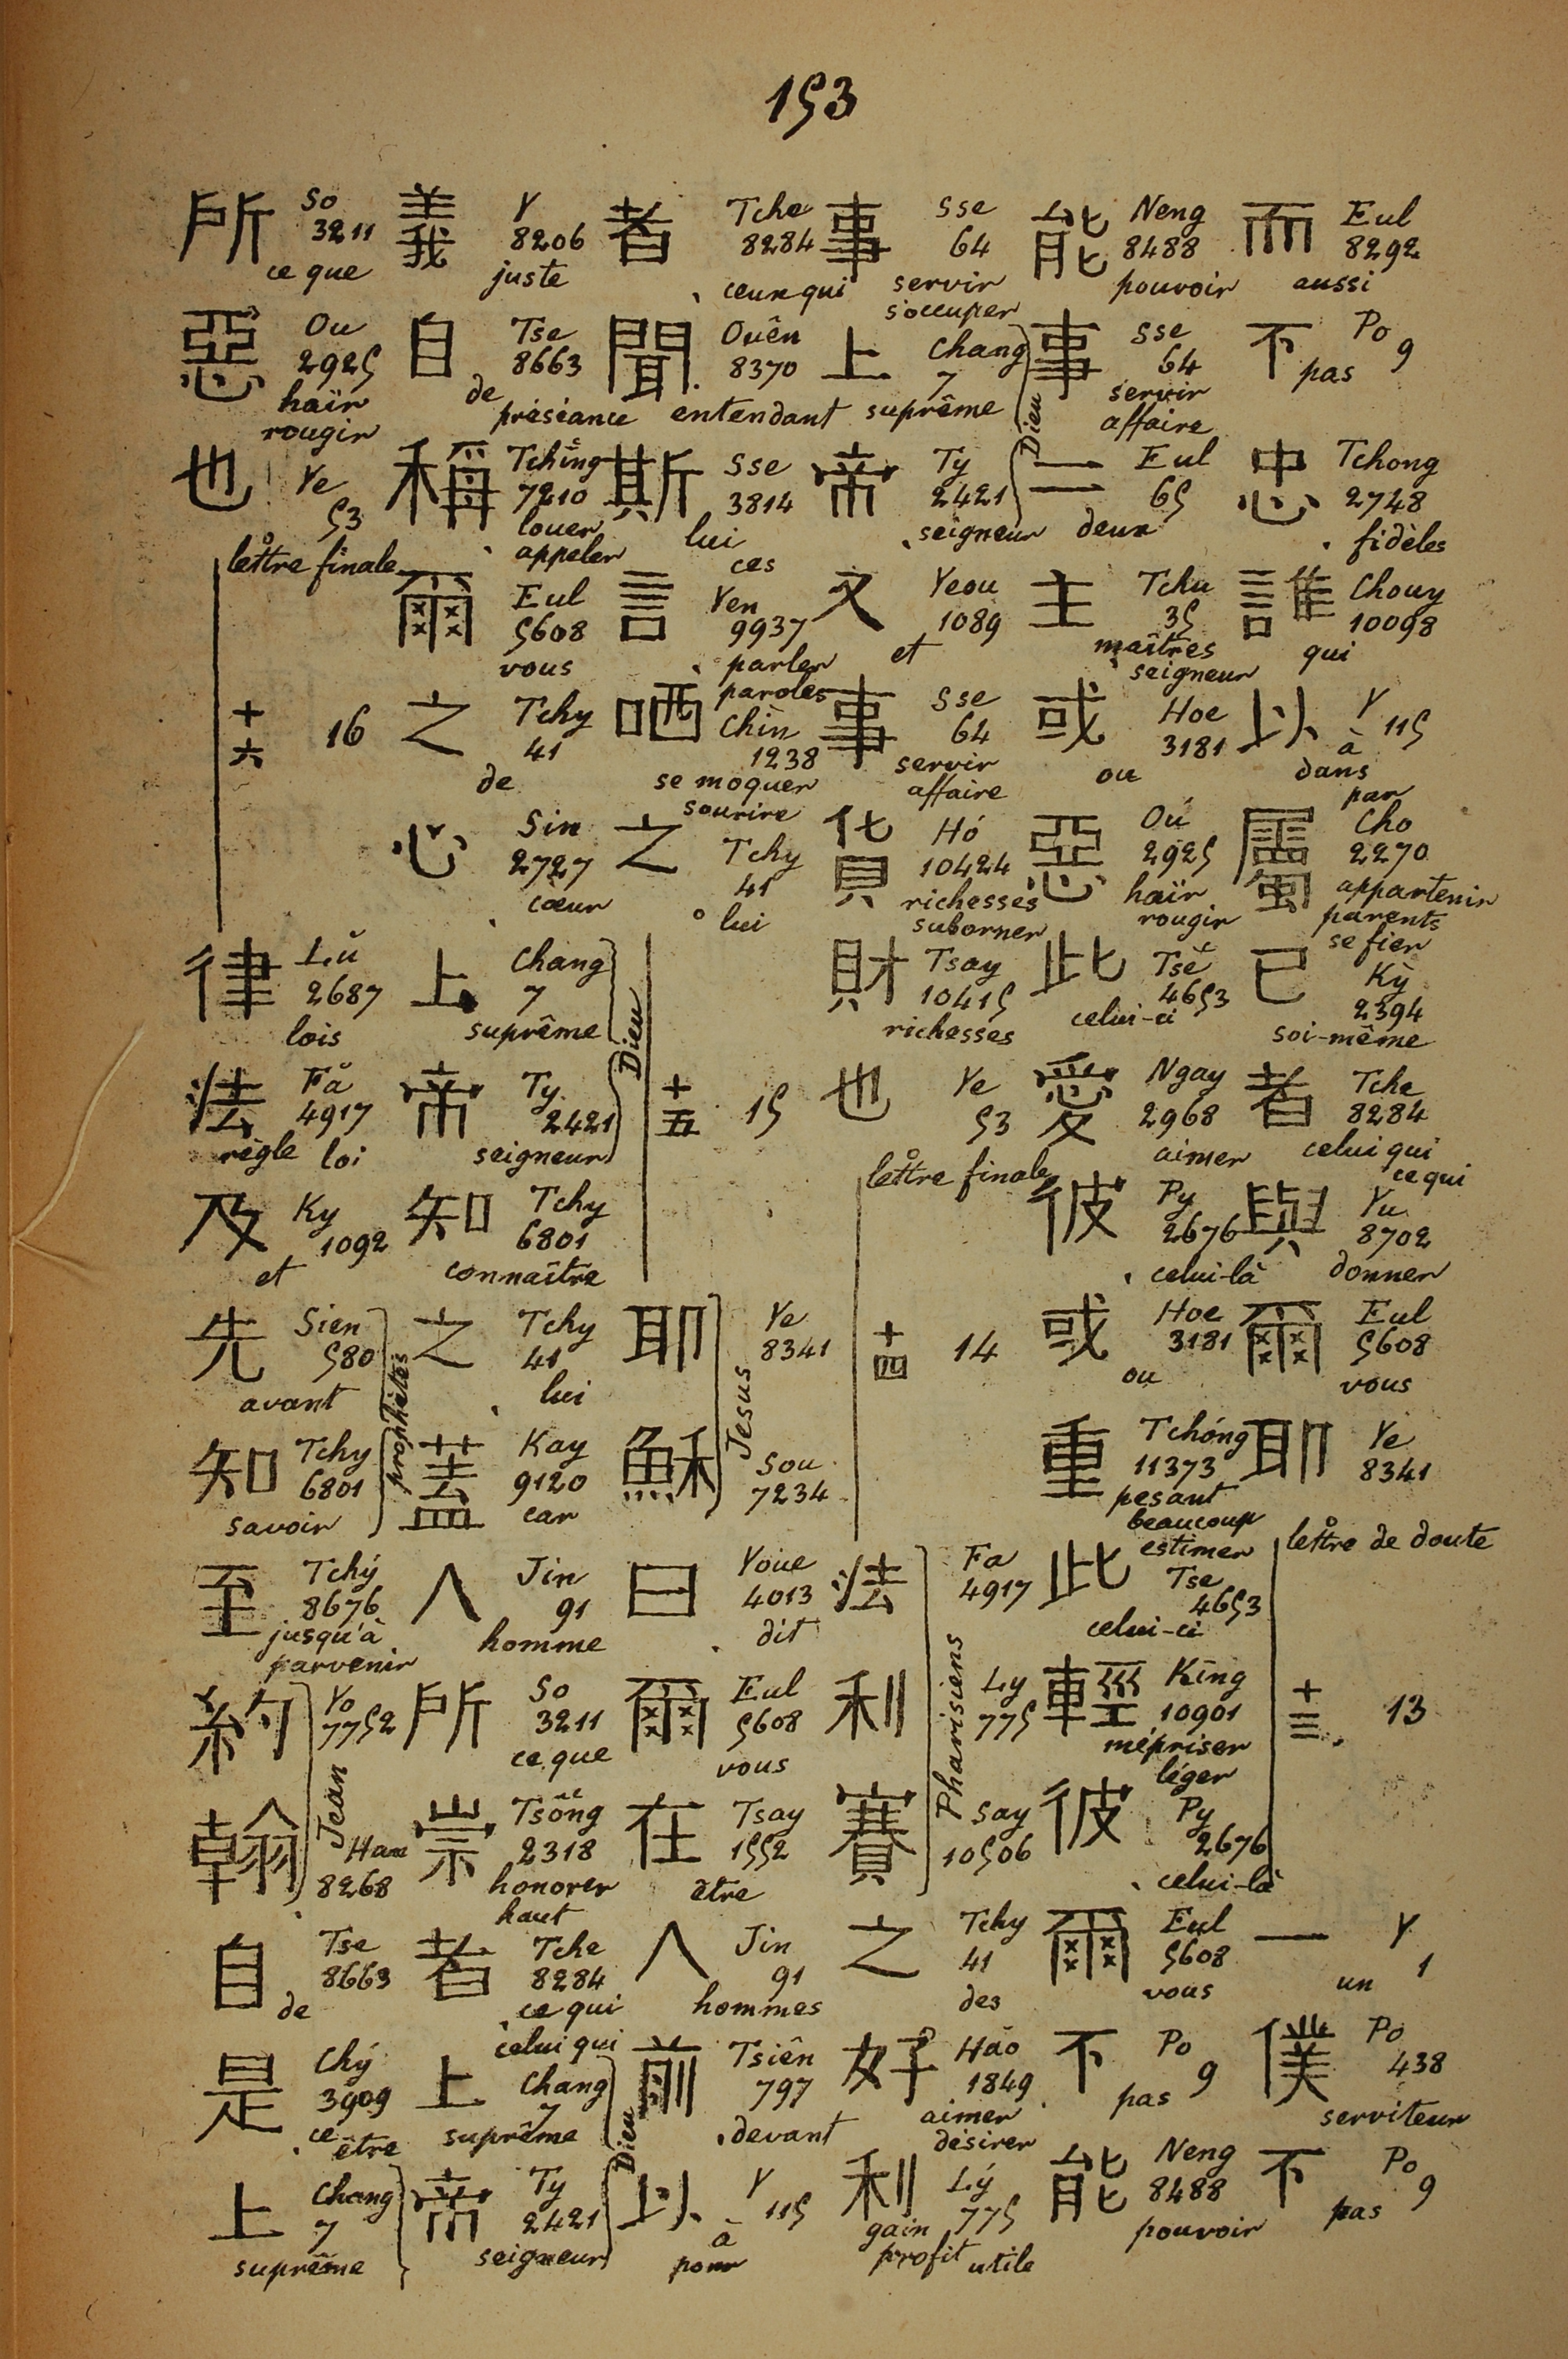 153
而 Eul 8292 aussi
不 Po 9 pas
忠 Tchong 2748 fidèles
誰 Chouy 10098 qui
以 Y 115 à dans par
屬 Cho 2270 appartenir parents se fier
己 Kỳ 2394 soi-même
者 Tche 8284 celui qui ce qui
與 Yu 8702 donner
爾 Eul 5608 vous
耶 Ye 8341 lettre de doute
十三 13
一 Y 1 un
僕 Po 438 serviteur
不 Po 9 pas
能 Neng 8488 pouvoir
事 Sse 64 servir affaire
二 Eul 65 deux
主 Tchu 35 maîtres seigneur
或 Hoe 3181 ou
惡 Oú 2925 haïr rougir
此 Tsě 4653 celui-ci
愛 Ngay 2968 aimer
彼 Py 2676 celui-là
或 Hoe 3181 ou
重 Tchóng 11373 pesant beaucoup estimer
此 Tse 4653 celui-ci
輕 Kīng 10901 mépriser léger
彼 Py 2676 celui-là
爾 Eul 5608 vous
不 Po 9 pas
能 Neng 8488 pouvoir
事 Sse 64 servir s'occuper
上 Chang 7 suprême
帝 Ty 2421 seigneur
Dieu
又 Yeou 1089 et
事 Sse 64 servir affaire
貨 Hó 10424 richesses suborner
財 Tsay 10415 richesses
也 Ye 53 lettre finale
十四 14
法 Fa 4917
利 Ly 775
賽 Say 10506
Pharisiens
之 Tchy 41 des
好 Háo 1849 aimer désirer
利 Lý 775 gain profit utile
者 Tche 8284 ceux qui
聞 Ouên 8370 entendant
斯 Sse 3814 lui ces
言 Yen 9937 parler paroles
哂 Chìn 1238 se moquer sourire
之 Tchy 41 lui
十五 15
耶 Ye 8341
穌 Sou 7234
Jesus
曰 Youe 4013 dit
爾 Eul 5608 vous
在 Tsay 1552 être
人 Jin 91 hommes
前 Tsiên 797 devant
以 Y 115 à pour
義 Y 8206 juste
自 Tse 8663 de préséance
稱 Tchīng 7210 louer appeler
爾 Eul 5608 vous
之 Tchy 41 de
心 Sin 2727 cœur
上 Chang 7 suprême
帝 Ty 2421 seigneur
Dieu
知 Tchy 6801 connaître
之 Tchy 41 lui
蓋 Kay 9120 car
人 Jin 91 homme
所 So 3211 ce que
崇 Tsông 2318 honorer haut
者 Tche 8284 ce qui celui qui
上 Chang 7 suprême
帝 Ty 2421 seigneur
Dieu
所 So 3211 ce que
惡 Ou 2925 haïr rougir
也 Ye 53 lettre finale
十六 16
律 Lǔ 2687 lois
法 Fǎ 4917 règle loi
及 Ky 1092 et
先 Sien 580 avant
知 Tchy 6801 savoir
prophètes
至 Tchý 8676 jusqu'à parvenir
約 Yo 7752
翰 Han 8268
Jean
自 Tse 8663 de
是 Chý 3909 ce être
上 Chang 7 suprême